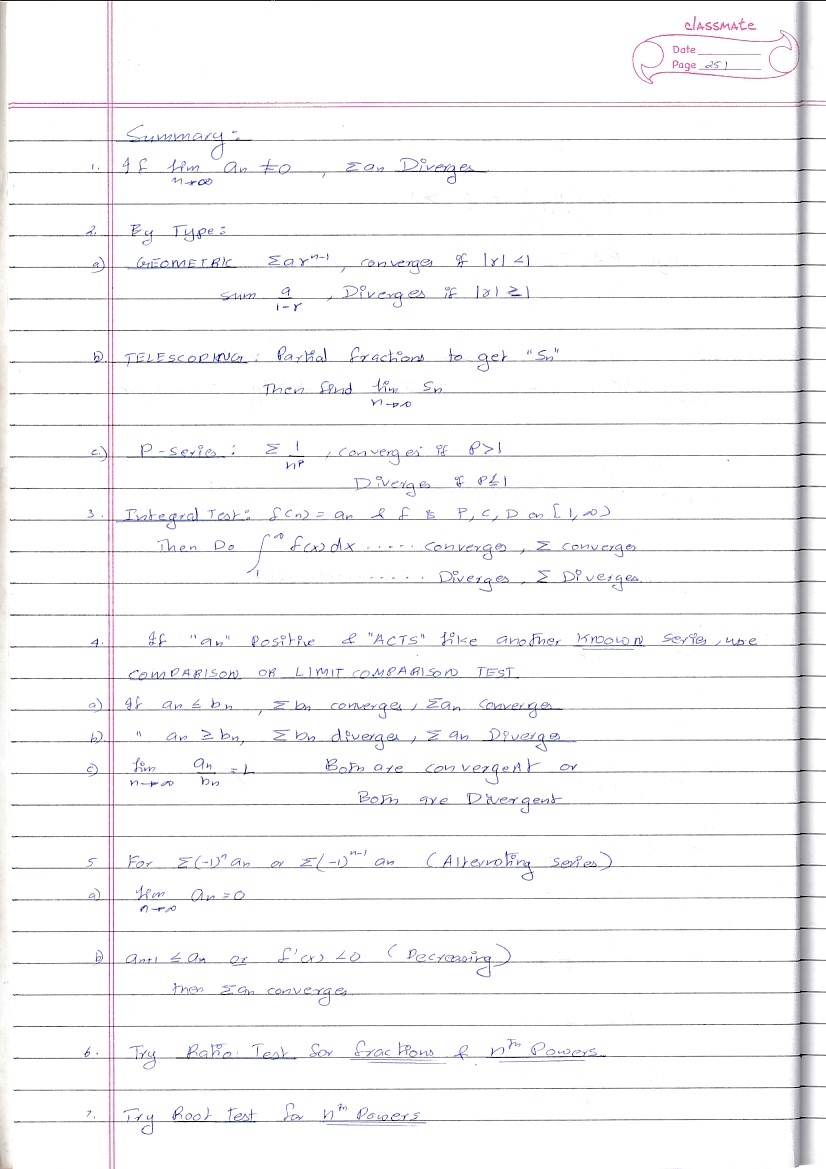 classmate
Date
Page 251
Summary:
1. If lim n→∞ an ≠ 0 , Σan Diverges
2. By Type:
a) GEOMETRIC Σar^n-1 , converges if |r| < 1
sum a/1-r , Diverges if |r| ≥ 1
b) TELESCOPING: Partial fractions to get "Sn"
Then find lim n→∞ Sn
c.) P-series: Σ 1/n^p , converges if P>1
Diverges if P≤1
3. Integral Test: f(n) = an & f is P, C, D on [1, ∞)
Then Do ∫1^∞ f(x) dx ..... converges, Σ converges
..... Diverges, Σ Diverges.
4. If "an" Positive & "ACTS" like another KNOWN series, use
COMPARISON OR LIMIT COMPARISON TEST.
a) If an ≤ bn , Σbn converges, Σan converges
b) " an ≥ bn, Σbn diverges, Σan Diverges
c) lim n→∞ an/bn = L Both are convergent or
Both are Divergent
5 For Σ(-1)^n an or Σ(-1)^n-1 an (Alternating series)
a) lim n→∞ an = 0
b) an+1 ≤ an or f'(x) <0 (Decreasing)
then Σan converges
6. Try Ratio Test for fractions & nth Powers
7. Try Root test for nth Powers